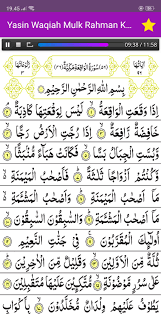 19.45
Yasin Waqiah Mulk Rahman K...
09:38 / 11:58
بِسْمِ اللَّهِ الرَّحْمَٰنِ الرَّحِيمِ
إِذَا وَقَعَتِ الْوَاقِعَةُ لَيْسَ لِوَقْعَتِهَا كَاذِبَةٌ
خَافِضَةٌ رَّافِعَةٌ إِذَا رُجَّتِ الْأَرْضُ رَجًّا
وَبُسَّتِ الْجِبَالُ بَسًّا فَكَانَتْ هَبَاءً مُّنْبَثًّا
فَأَصْحَٰبُ الْمَيْمَنَةِ
مَا أَصْحَٰبُ الْمَيْمَنَةِ وَأَصْحَٰبُ الْمَشْـَٔمَةِ
مَا أَصْحَٰبُ الْمَشْـَٔمَةِ وَالسَّٰبِقُونَ السَّٰبِقُونَ
أُولَٰئِكَ الْمُقَرَّبُونَ فِي جَنَّٰتِ النَّعِيمِ
ثُلَّةٌ مِّنَ الْأَوَّلِينَ وَقَلِيلٌ مِّنَ الْآخِرِينَ
عَلَىٰ سُرُرٍ مَّوْضُونَةٍ مُّتَّكِـِٔينَ عَلَيْهَا مُتَقَٰبِلِينَ
يَطُوفُ عَلَيْهِمْ وِلْدَٰنٌ مُّخَلَّدُونَ بِأَكْوَابٍ